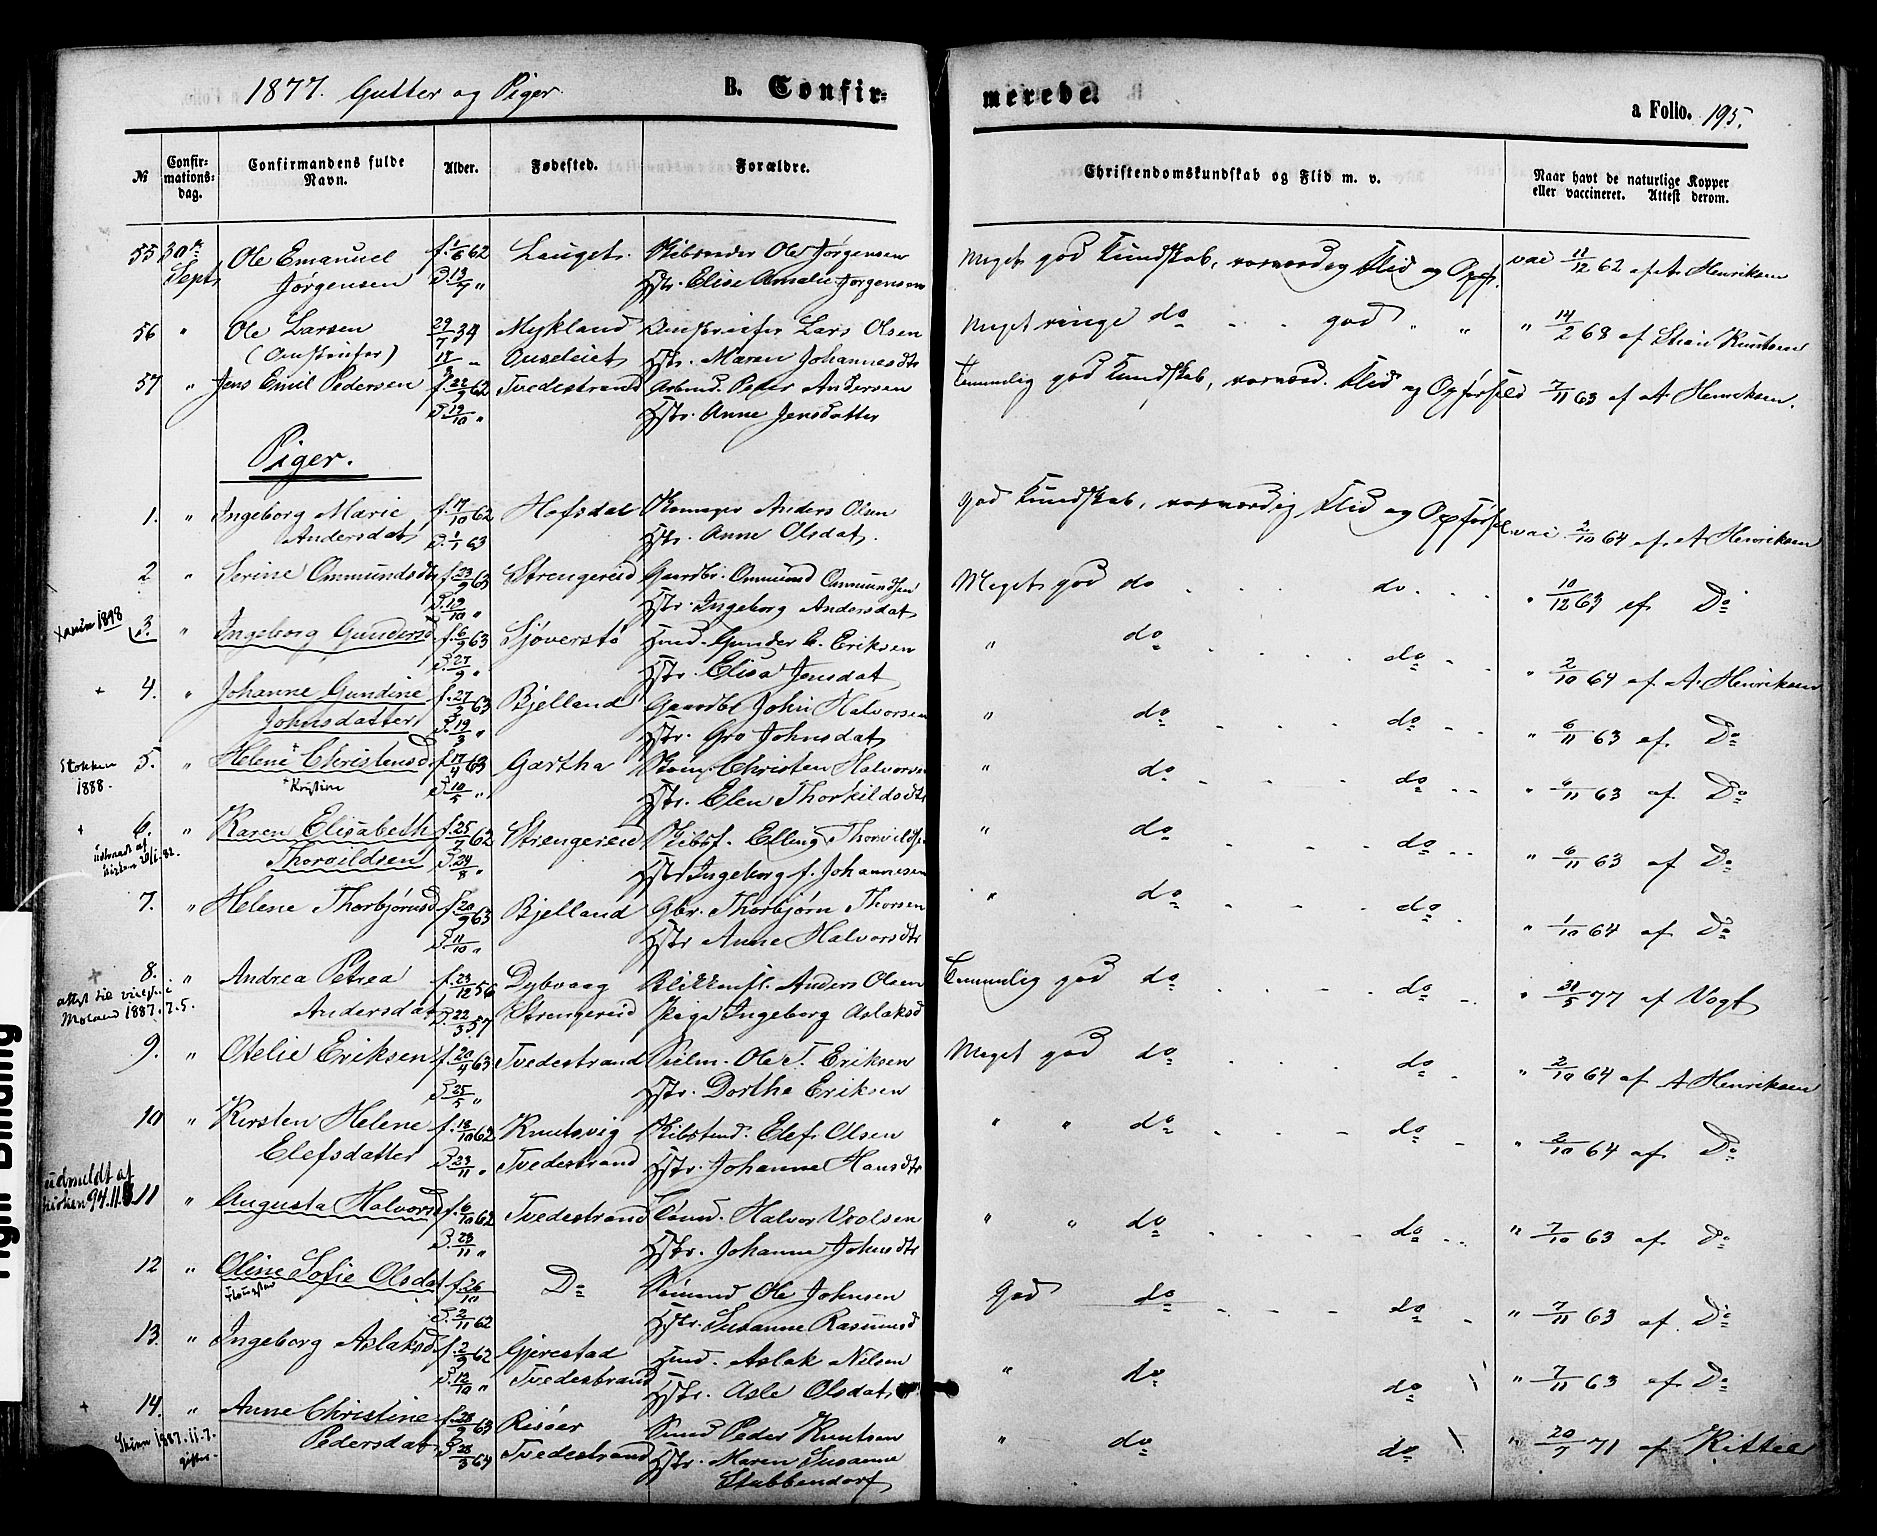 1877. Gutter og Piger. B. Confirmerede. a Folio. 195.
№ Confirmationsdag. Confirmandens fulde Navn. Alder. Fødested. Forældre. Christendomskundskab og Flid m. v. Naar havt de naturlige Kopper eller vaccineret. Attest derom.
55 30te Sept. Ole Emanuel f. 1/6 62 Lauget. Ole Jørgensen Meget god Kundskab, Flid og Opf. vac 11/12 62 af A. Henriksen
Jørgensen D. 13/7 " Hstr. Elise Amalie Jørgensen
56 " Ole Larsen 29/7 34 Mykland Lars Olsen Meget ringe do . . god " " " 14/2 68 af Knutsen
Hstr. Maren Johannesdtr
57 " Jens Emil Pedersen f. 22/9 62 Tvedestrand Arbmd. Peder Andersen Temmelig god Kundskab, Flid og Opførsel 7/11 63 af A. Henriksen.
D. 19/10 " Hstr. Anne Jensdatter
Piger.
1. " Ingeborg Marie f. 17/10 62 Hofsdal Anders Olsen God Kundskab, Flid og Opførsel vac. 2/10 64 af A Henriksen
Andersdat D. 1/1 63 Hstr. Anne Olsdat.
2 " Serine Ommundsdtr f. 23/9 63 Strengereid Gaardbr. Ommund Ommundsen Meget god do . . . do. . . " 10/12 63 af Do
D. 19/10 " Hstr. Ingeborg Andersdat
1898 3. " Ingeborg Gundersd f. 6/9 63 Sjøverstø Hmd. Gunder E. Eriksen " do . . . do . . " 2/10 64 af A. Henriksen
D. 27/9 " Hstr. Elisa Jensdat
+ 4. " Johanne Gundine f. 27/2 63 Bjelland Gaardbr John Halvorsen " do . . . do . . " 6/11 63 af Do
Johnsdatter D. 19/3 " Hstr. Gro Johnsdat
Stokken 1888. 5. " Helene + Christensd f. 17/4 63 Gartha Christen Halvorsen " do . . . do . . " 6/11 63 af Do
+ Kristine D. 10/5 " Hstr. Elen Thorkildsdtr
+ 6. " Karen Elisabeth f. 25/7 62 Strengereid Elling Thorvildsen " do . . . do . . " 6/11 63 af Do
udtraadt af kirken 82. Thorvildsen D. 24/8 " Hstr Ingeborg f. Johannesen
7. " Helene Thorbjørnsd f. 20/9 63 Bjelland Gbr. Thorbjørn Thorsen " do . . . do . " 1/10 64 af Do
D. 11/10 " Hstr Anne Halvorsdtr
+ 8. " Andrea Petrea f. 23/12 56 Dybvaag Blikkensl. Anders Olsen Temmelig god do . . . do . " 31/5 77 af Vogt
attest til vielse i Moland 1887.7.5. Andersdat D. 22/3 57 Strengereid Pige Ingeborg Aslaksd
9. " Otelie Eriksen f. 20/4 63 Tvedestrand Ole T. Eriksen Meget god do . . . do . " 2/10 64 af A Henriksen
D. 25/5 " Hstr. Dorthe Eriksen
10 " Kirsten Helene f. 18/10 62 Knutsvig Elef Olsen " " do . . . do . " 2/10 64 af Do
Elefsdatter D. 23/11 " Tvedestrand Hstr. Johanne Hansdtr
udmeldt af kirken 94.11. 11 " Augusta Halvorsd f. 6/10 62 Tvedestrand Halvor Vrolsen " " do . . . . do . . " 7/10 63 af Do
D. 23/11 " Hstr. Johanne Johnsdtr
12 " Oline Sofie Olsdat f. 26/10 Do Ole Johnsen God do . . . do . " 7/11 63 af Do
D. 2/11 62 Hstr. Susanne Rasmusd
13. " Ingeborg Aslaksd. f. 2/9 62 Gjerestad Hmd. Aslak Nilsen " do do " 7/11 63 af Do
D. 12/10 " Tvedestrand Hstr. Asle Olsdat
+ 14. " Anne Christine f. 28/9 63 Risøer Peder Knutsen " do do " 20/7 71 af Kittel
Skien 1887.11.7. Pedersdat D. 28/3 64 Tvedestrand Hstr. Maren Susanne
Stabbendorf